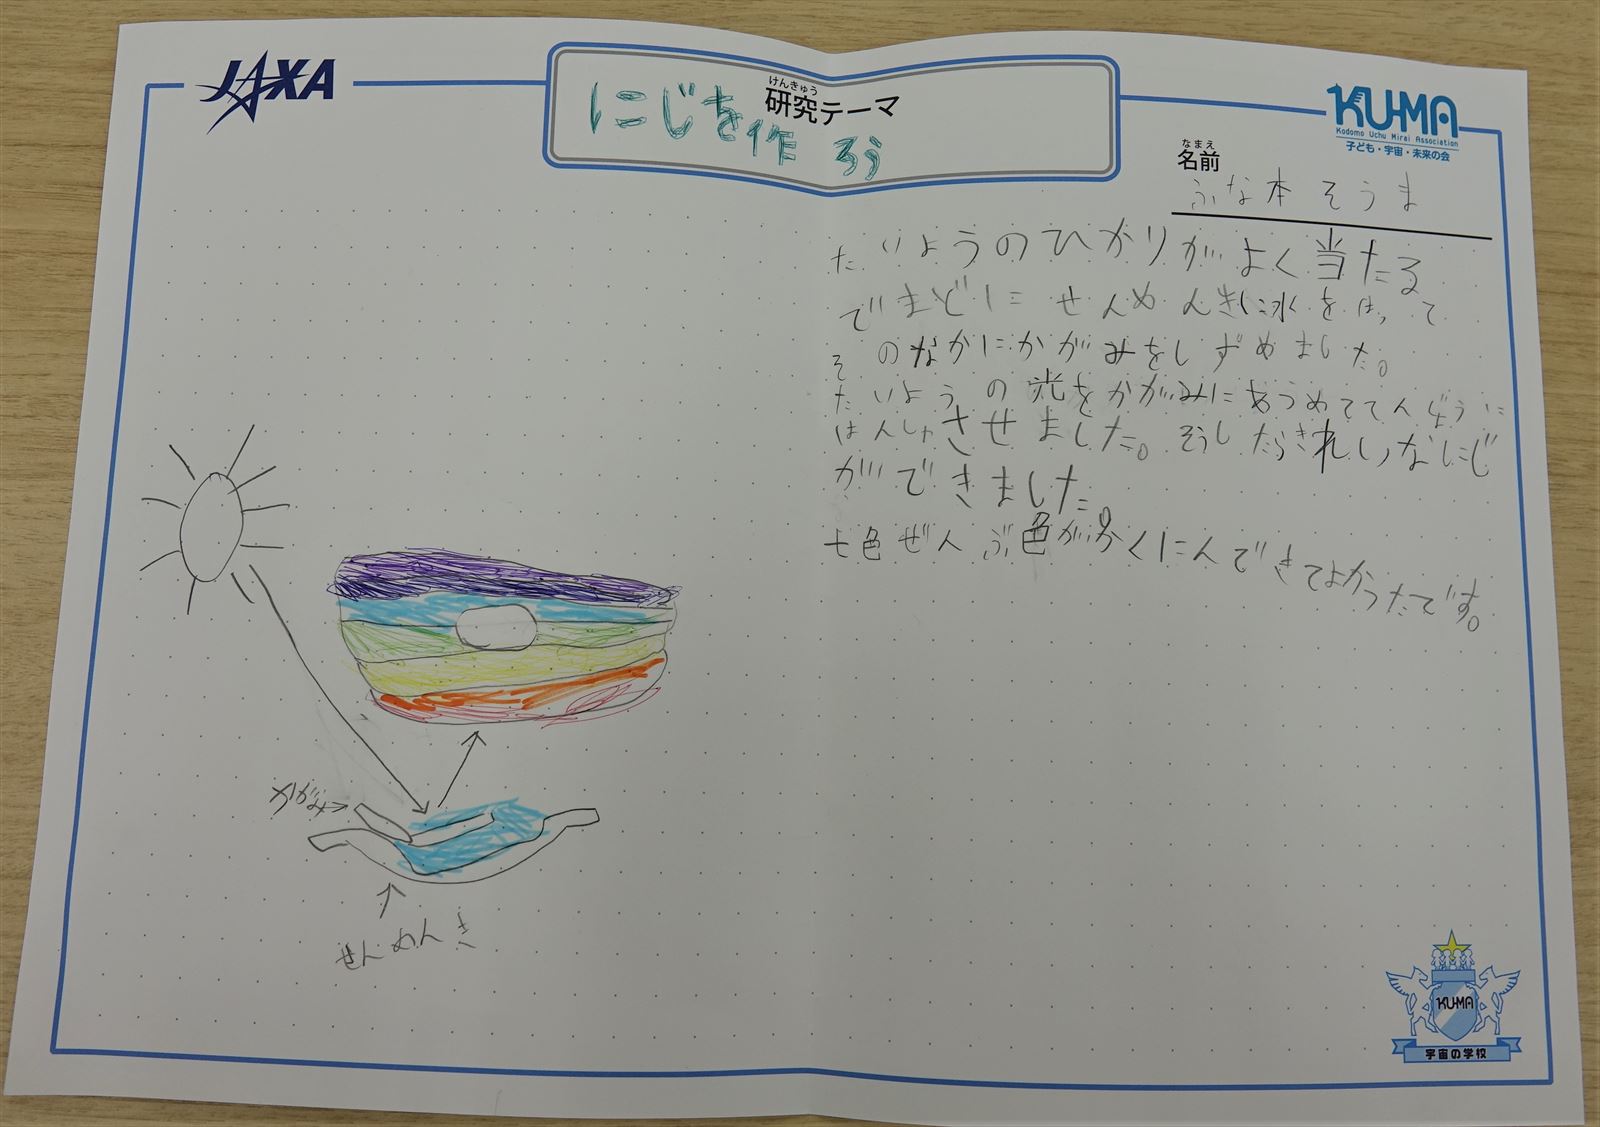 JAXA
けんきゅう
研究テーマ
にじを作ろう
KU-MA
Kodomo Uchu Mirai Association
子ども・宇宙・未来の会
なまえ
名前
ふな本そうま
たいようのひかりがよく当たる
でまどにせんめんきに水をはって
そのなかにかがみをしずめました。
たいようの光をかがみにあつめててんじょうに
はんしゃさせました。そうしたらきれいなにじ
ができました。
七色ぜんぶ色がかくにんできてよかったです。
かがみ
せんめんき
KU-MA
宇宙の学校